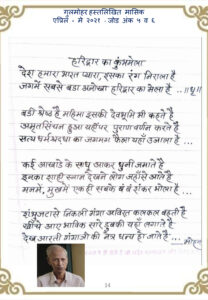 गुलमोहर हस्तलिखित मासिक
एप्रिल - मे २०२१ - जोड अंक ५ व ६
हरिद्वार का कुंभमेला
देश हमारा भारत प्यारा, इसका रंग निराला है
जगमें सबसे बडा अनोखा हरिद्वार का मेला है ..॥धृ॥
बडी श्रेष्ठ है महिमा इसकी देवभूमि भी कहते है
अमृतसिंचन हुआ यहाँपर पुराण वर्णन करते है
सत्य धर्मश्रध्दा का जगमग फैला यहाँ उजाला है ...
कई आखाडे के साधू आकर धुनी जमाते है
इनका शाही स्नान देखने लोग जहाँसे आते है
मनमे, मुखमे एकही सबके बं बं शंकर भोला है ...
शंभुजटासे निकली गंगा अविरत कलकल बहती है
खींचे आए भाविक सारे डुबकी यहाँ लगाते है
देख आरती गंगाजी की मन धन्य हो जाते है ...
मोहन
14